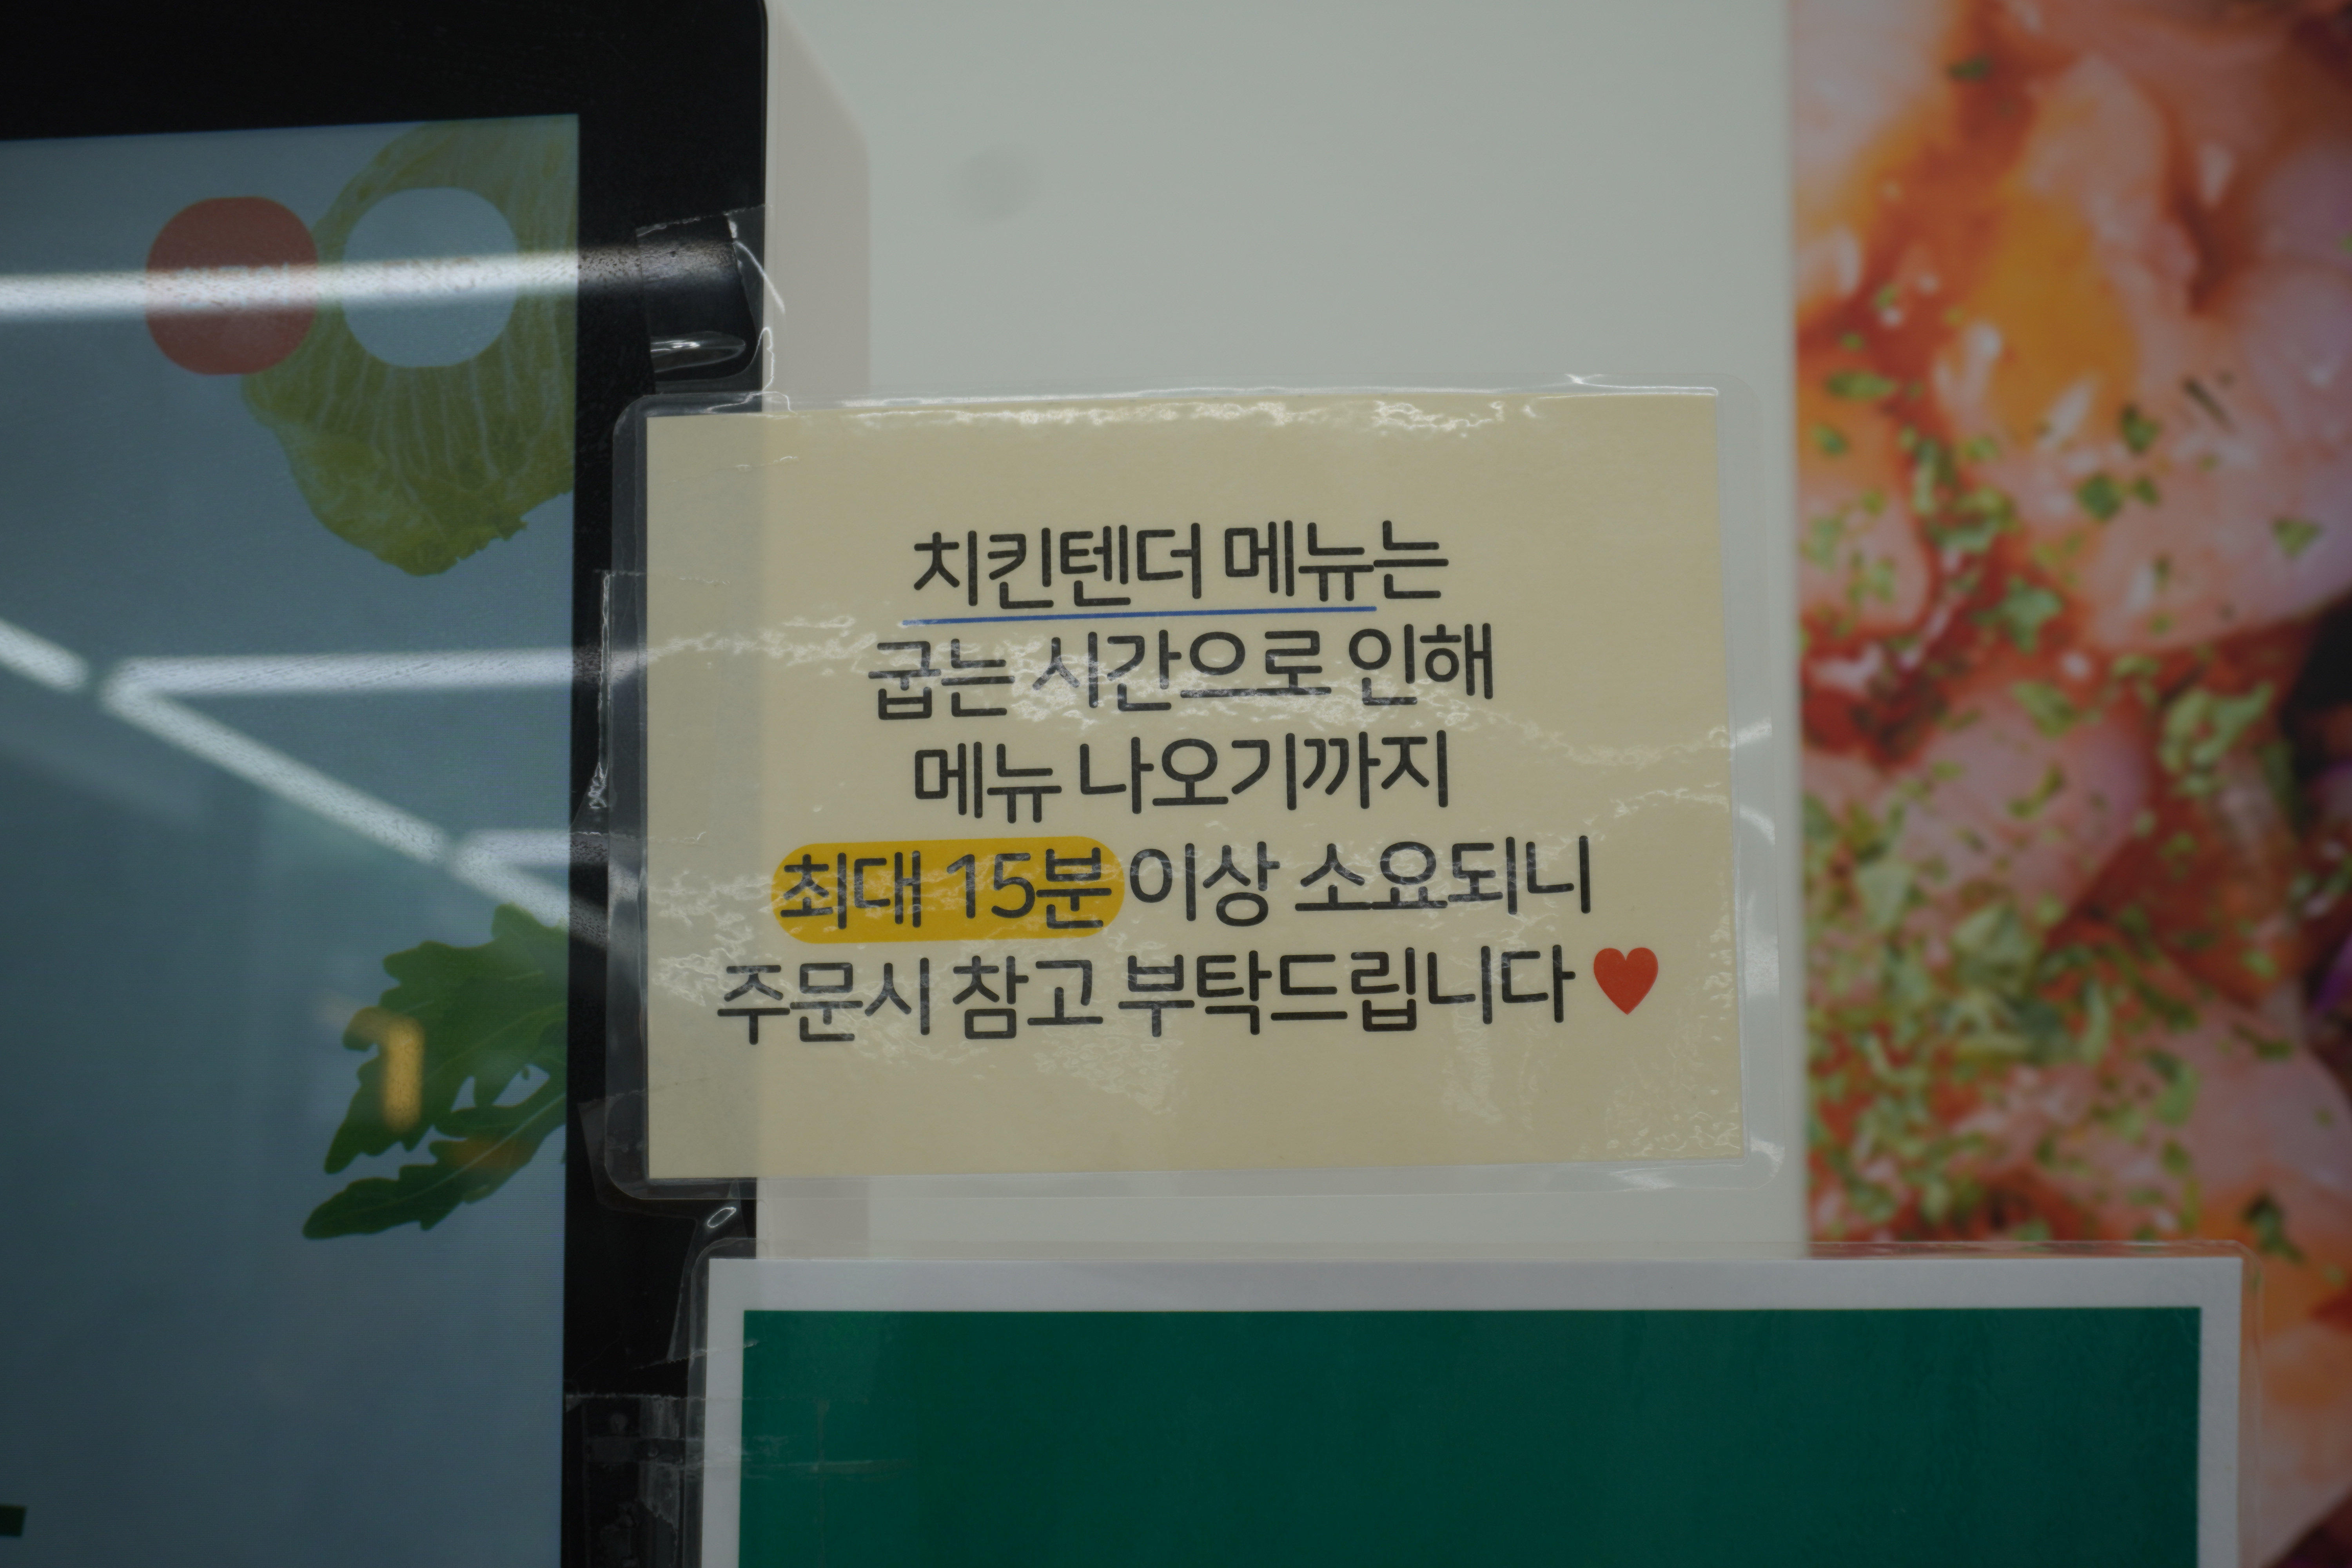 치킨텐더 메뉴는
굽는 시간으로 인해
메뉴 나오기까지
최대 15분 이상 소요되니
주문시 참고 부탁드립니다 ♥